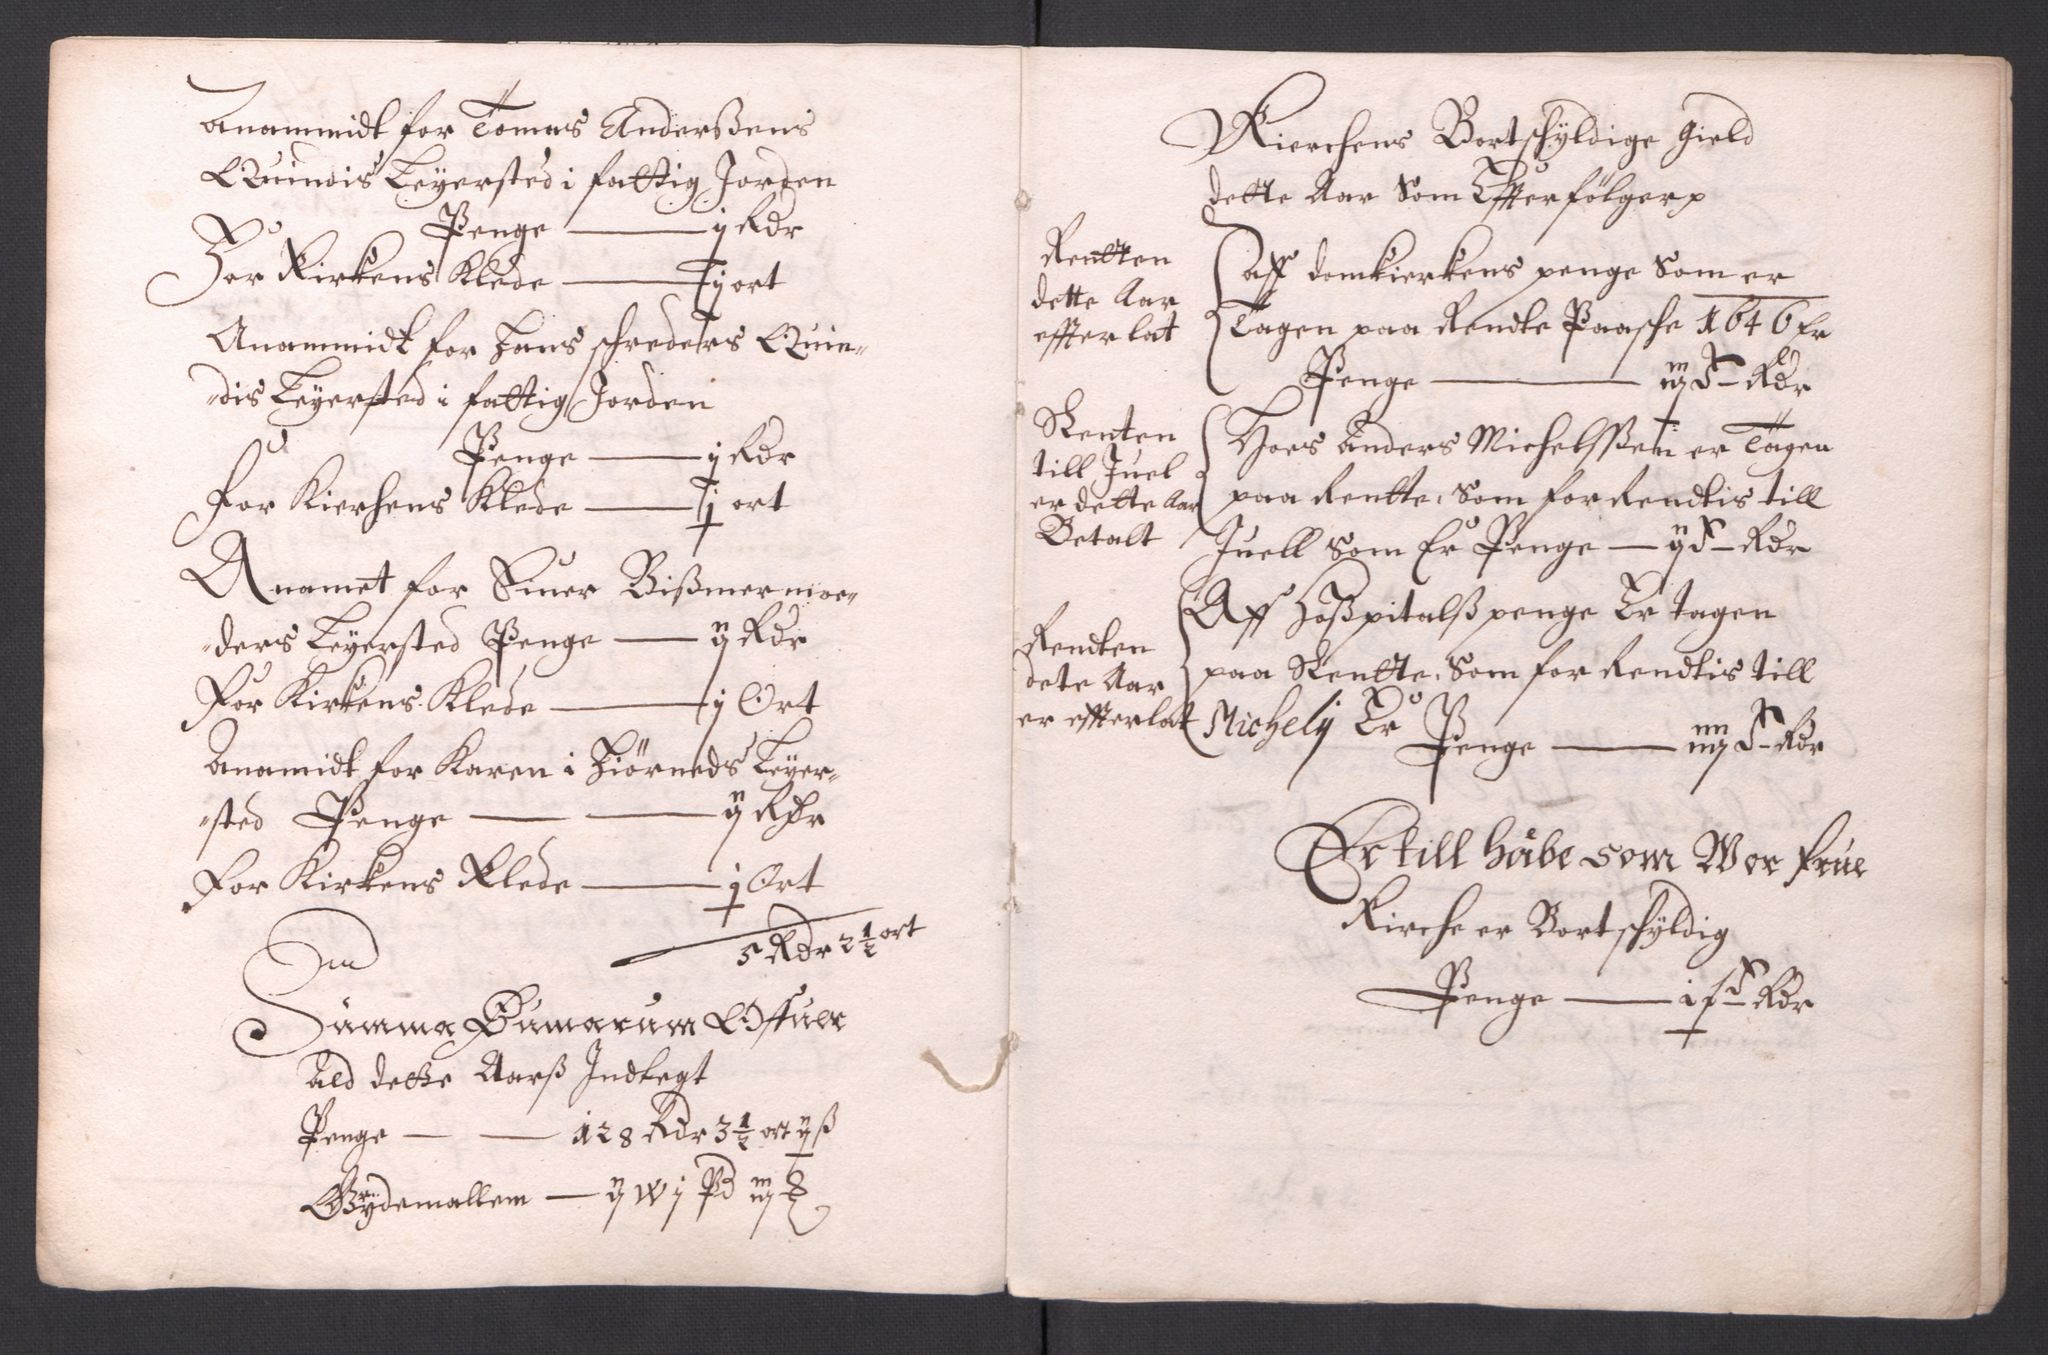 Anammidt for Tomas Anderßens
Quindis Leyersted i fattig Jorden
Penge — j Rdr
For Kirkens Klede — j ort
Anammidt for Hans schreders Quin-
-dis Leyersted i fattig Jorden
Penge — j Rdr
For Kierchens Klede — j ort
Anamet for Siuer Bißmermoe-
-ders Leyersted Penge — ij Rdr
For Kirkens Klede — j Ort
Anamidt for Karen i Hiørneds Leyer-
-sted Penge — ij Rdr
For Kirkens Klede — j Ort
5 Rdr 2½ ort
Summa Sumarum Offuer
Ald dette Aarß Indtegt
Penge — 128 Rdr 3½ ort ij ß
Grydemallem — ij W j Pd iiij
Kierchens Bortschyldige gield
dette Aar Som Effterfölger
Rentten
dette Aar
effterlat
aff domkierkens penge Som er
Tagen paa Rendte Paasche 1646 Er
Penge — iiij d Rdr
Renten
till Juel
er dette Aar
Betalt
Hoes Anders Michelsßen er Tagen
paa Rentte, Som for Rendtis till
Juell Som Er Penge — ij d Rdr
Rendten
dete Aar
er effterlat
Aff Hoßpitalß penge Er tagen
paa Rentte, Som for Rendtis till
Michelij Er Penge — iiij d Rdr
Er till håbe som Wor frue
Kirche er Bortschyldig
Penge — j d Rdr